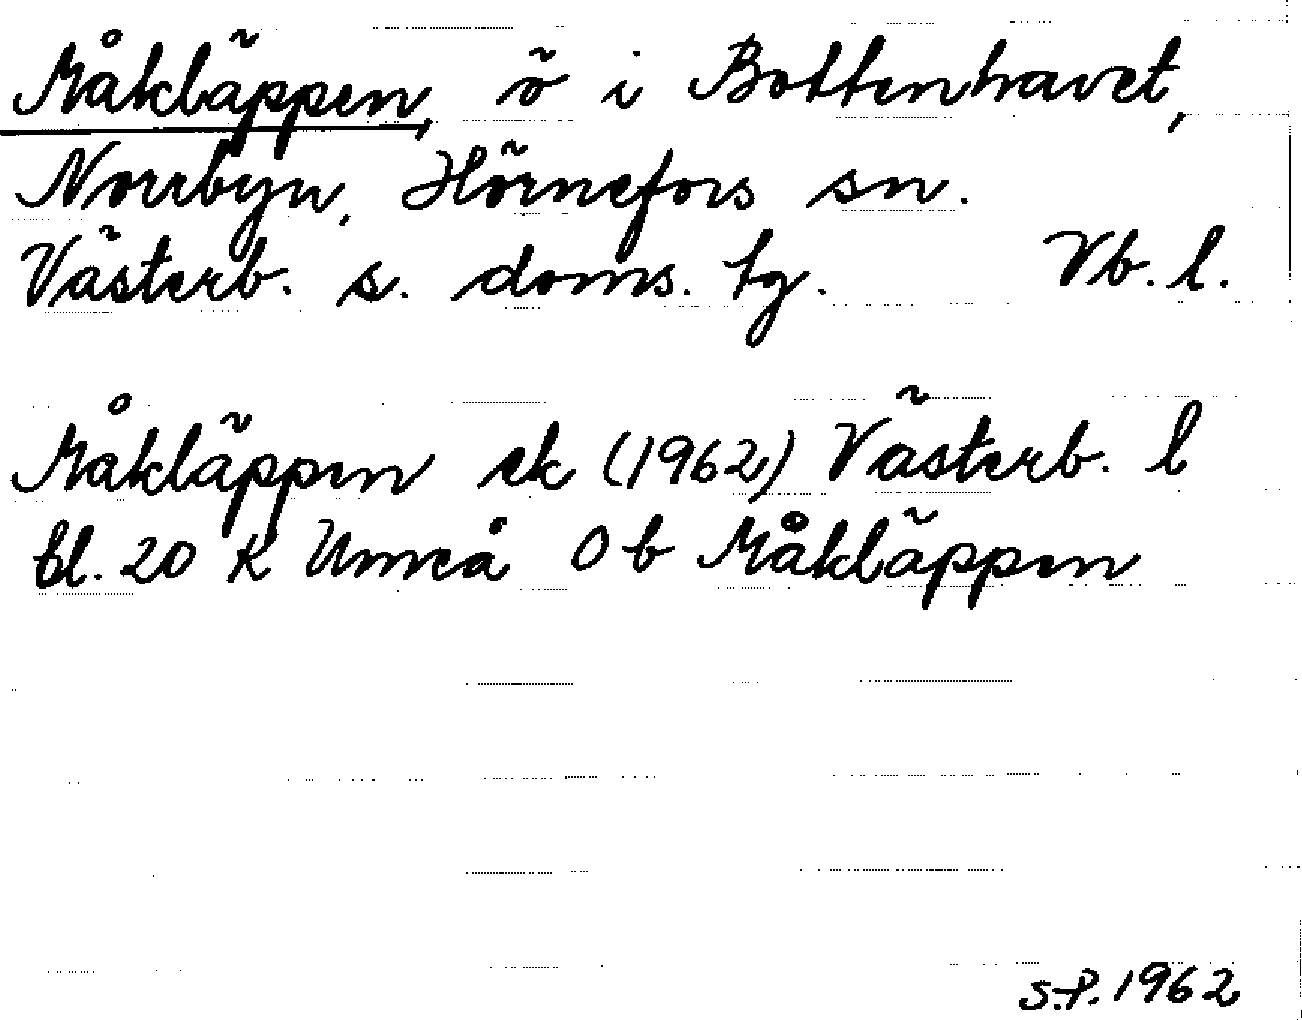 Måkläppen, ö i Bottenhavet,
Norrbyn, Hörnefors sn.
Västerb. s. doms. tg. Vb. l.
Måkläppen ek (1962) Västerb. l
bl. 20 K Umeå Ob Måkläppen
S.P. 1962